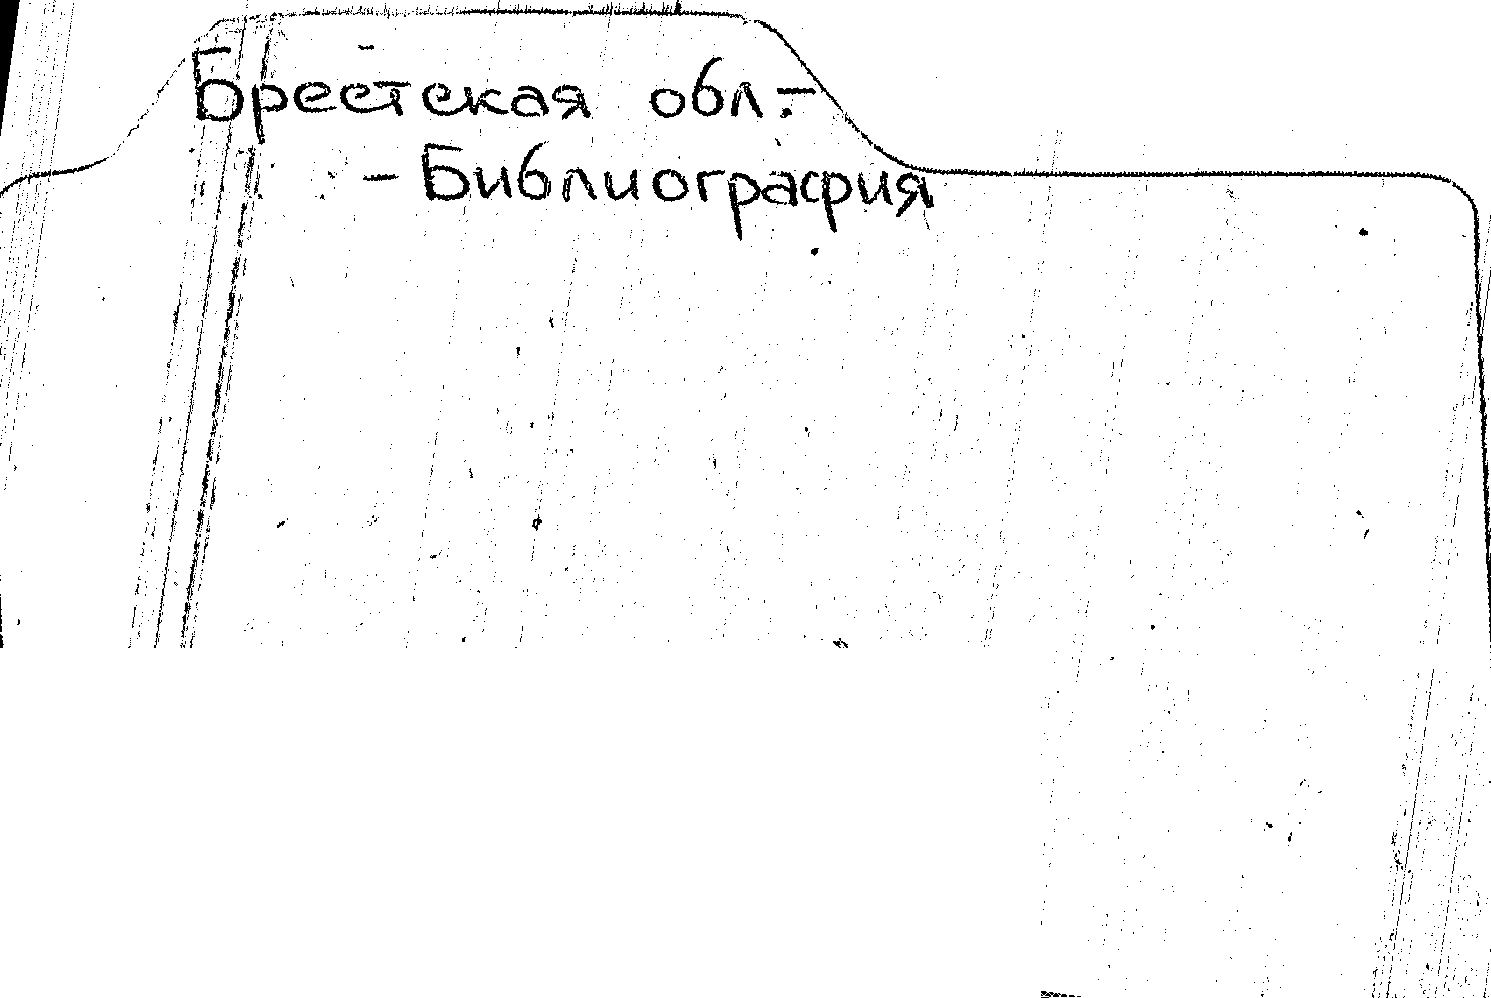 Брестская обл.-
- Библиография